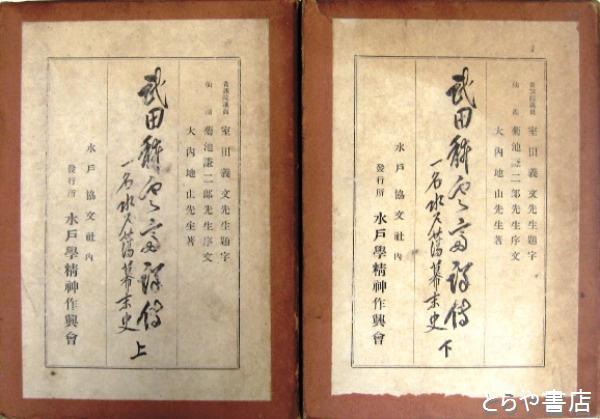 貴族院議員 室田義文先生題字
仙湖 菊池謙二郎先生序文
大內地山先生著
武田耕雲斎詳傳
一名水戸藩幕末史 上
水戸協文社內
發行所 水戸學精神作興會
貴族院議員 室田義文先生題字
仙湖 菊池謙二郎先生序文
大內地山先生著
武田耕雲斎詳傳
一名水戸藩幕末史 下
水戸協文社內
發行所 水戸學精神作興會
とらや書店